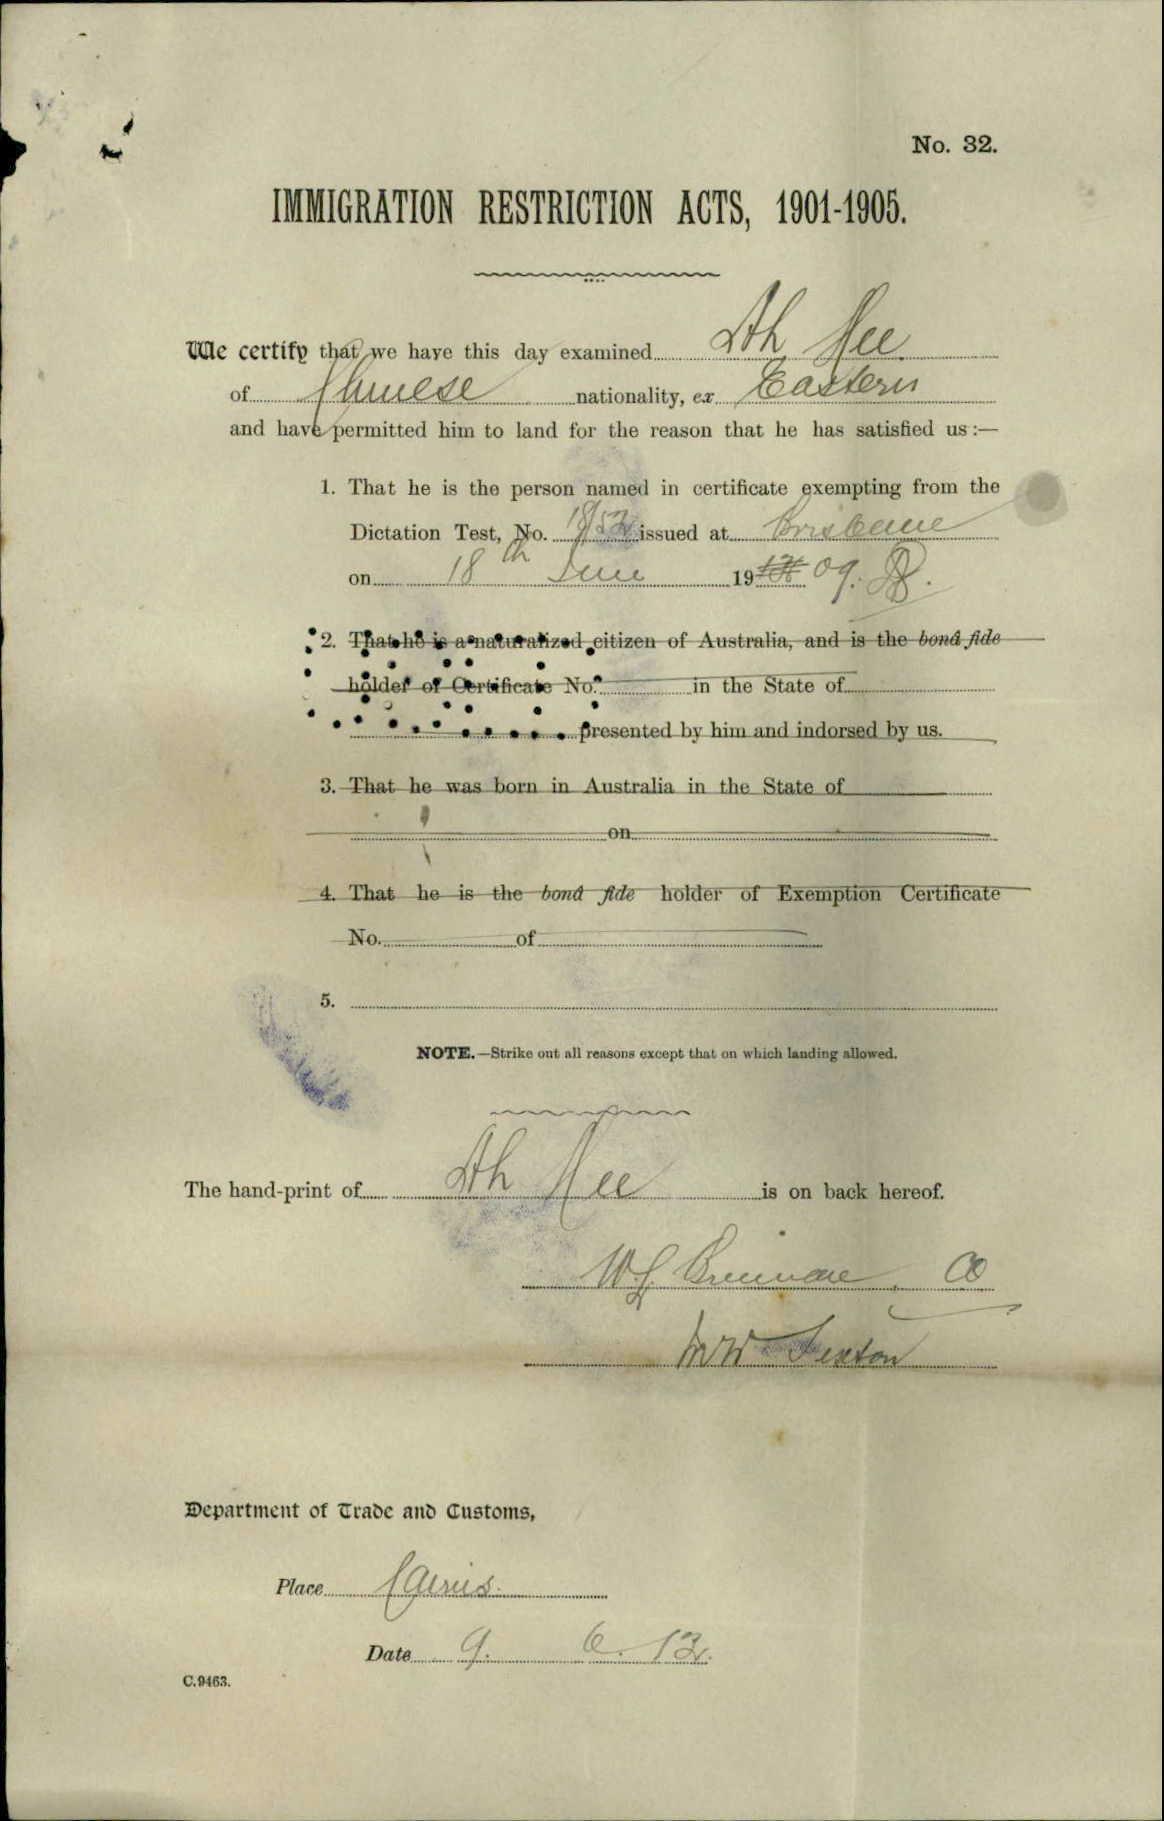 No. 32.
IMMIGRATION RESTRICTION ACTS, 1901-1905.
We certify that we have this day examined Ah Hee
of Chinese nationality, ex Eastern
and have permitted him to land for the reason that he has satisfied us:—
1. That he is the person named in certificate exempting from the
Dictation Test, No. issued at Brisbane
on 18th June 19 09.
2. That he is a naturalized citizen of Australia, and is the bonâ fide
holder of Certificate No. in the State of
presented by him and indorsed by us.
3. That he was born in Australia in the State of
on
4. That he is the bonâ fide holder of Exemption Certificate
No. of
5.
NOTE.—Strike out all reasons except that on which landing allowed.
The hand-print of Ah Hee is on back hereof.
W.L.
Sexton
Department of Trade and Customs,
Place Cairns.
Date 9. 6. 13.
C.9463.